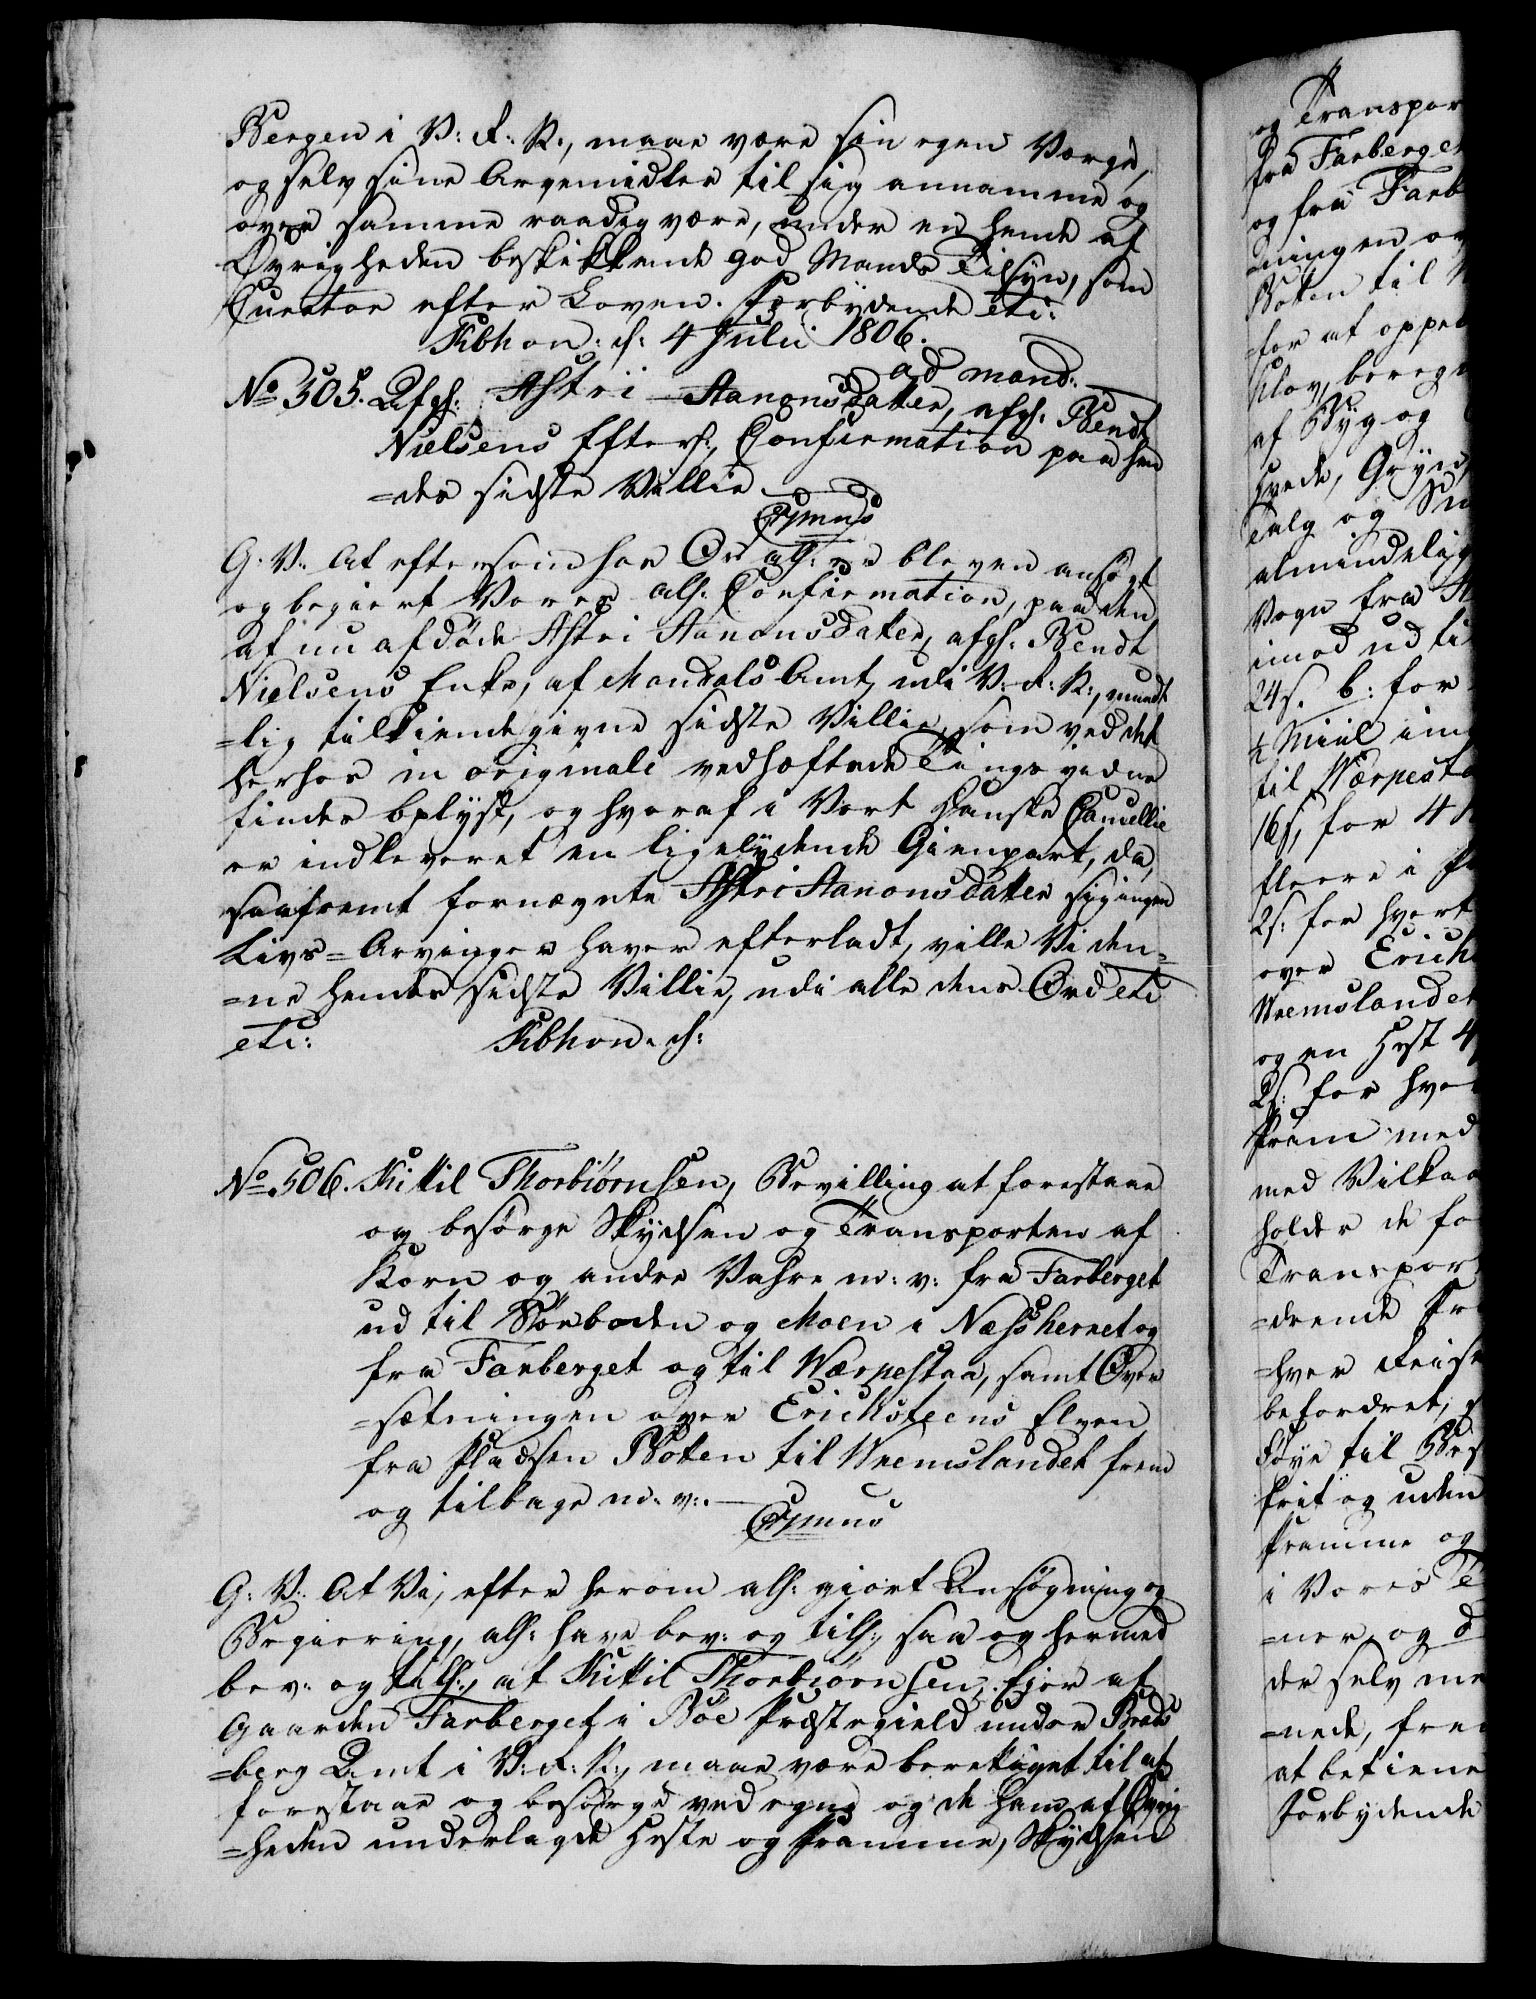 Bergen i V: R: N:, maae være sin egen Værge,
og selv sine Arvemidler til sig annamme og
over samme raadig være, under en hende af
Øvrigheden beskikkende god Mands Tilsyn, som
Curator efter Loven. Forbydende etc:
Kbhvn: d: 4 Julii 1806.
ad mand:
No 505. Afg: Astri Aanonsdatter, afg: Bendt
Nielsens Efterl:, Confirmation paa hen
=des sidste Villie
Cfmus
G: V: At eftersom hos Os all: er bleven ansøgt
og begiert Vores all: Confirmation, paa den
af nu afdøde Astri Aanonsdatter, afg: Bendt
Nielsens Enke, af Mandals Amt, udi V: R: N:, mundt
=lig tilkiendegivne sidste Villie, som ved det
herhos in originali vedhæftede Tingsvidne
findes oplyst, og hvoraf i Vort Danske Cancellie
er indleveret en ligelydende Gienpart, da,
saafremt fornævnte Astri Aanonsdatter sig ingen
Livs=Arvinger haver efterladt, ville Vi den=
=ne hendes sidste Villie, udi alle dens Ord etc
etc: Kbhvn: d:
No 506. Kittil Thorbiørnsen, Bevilling at forestaae
og besørge Skydsen og Transporten af
Korn og andre Vahre m: v: fra Farberget
ud til Nørboden og Moen i Næsherret og
fra Farberget og til Værpestaa, samt Over
=sætningen over Ericksteens Elven
fra Pladsen Boten til Vremslandet frem
og tilbage m: v:.
Cfmus
G: V: At Vi, efter herom all: giort Ansøgning og
Begiering, all: have bev: og till:, saa og hermed
bev: og till:, at Kittil Thorbiørnsen, Eier af
Gaarden Farberget i Bøe Præstegield under Brads
=berg Amt i V: R: N:, maae være berettiget til at
forestaae og besørge ved egne og de ham af Øvrig
=heden underlagde Heste og Pramme, Skydsen
og Transpor
fra Farberget
og fra Farb
=ningen ov
Boten til
for at oppe
af Byg og
Hvede, Gryn
Talg og
almindelig
Vogn fra
imod ud ti
24 s. b: for
½ Miil im
til Værpesta
16 s, for 4
fleere i
2 s: for hvert
over Erick
Vremslandet
og en Hest 4
2 s: for hver
Pram med
med Vilkaa
holder de fo
Transport
=drende
=hver Reise
befordret,
føye til
frit og uden
Pramme og
i Vores
=ner, og
der selv me
=nede, fre
at betiene
Forbydende